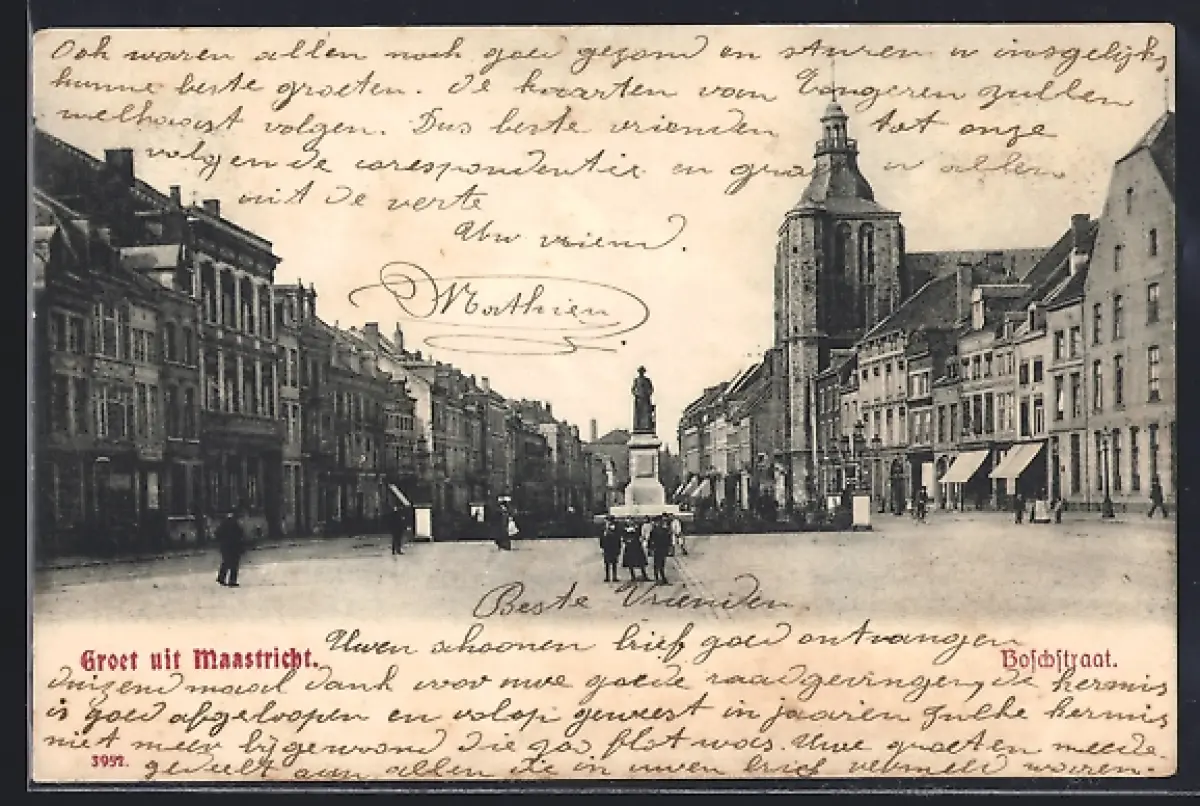 Ook waren allen noch goed gezond en sturen u insgelijks
hunne beste groeten. De kaarten van Tongeren zullen
welhaast volgen. Dus beste vrienden tot onze
volgende corespondentie en groet u allen
uit de verte
Uw vriend.
Mathieu
Beste Vrienden
Uwen schoonen brief goed ontvangen
Groet uit Maastricht.
Boschstraat.
duizend maal dank voor uwe goede raadgevingen, de kermis
is goed afgeloopen en volop geweest in jaaren zulke kermis
niet meer bijgewoond die zoo flot was. Uwe groeten meede
3952.
gedeelt aan allen die in uwen brief vermeld waren.